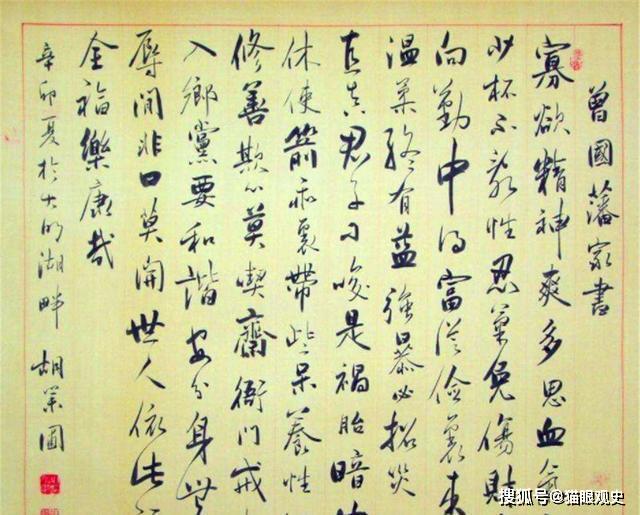 曾國藩家書
寡欲精神爽多思血氣
少杯不亂性忍氣免傷財
向勤中得富從儉裏來
温柔終有益強暴必招災
直真君子刁唆是禍胎暗
休使箭乖裏帶些呆養性
修善欺心莫喫齋衙門戒
入鄉黨要和諧安分身無
辱閒非口莫開世人依此
全福樂康哉
辛卯夏於大明湖畔 胡
搜狐号@猫眼观史